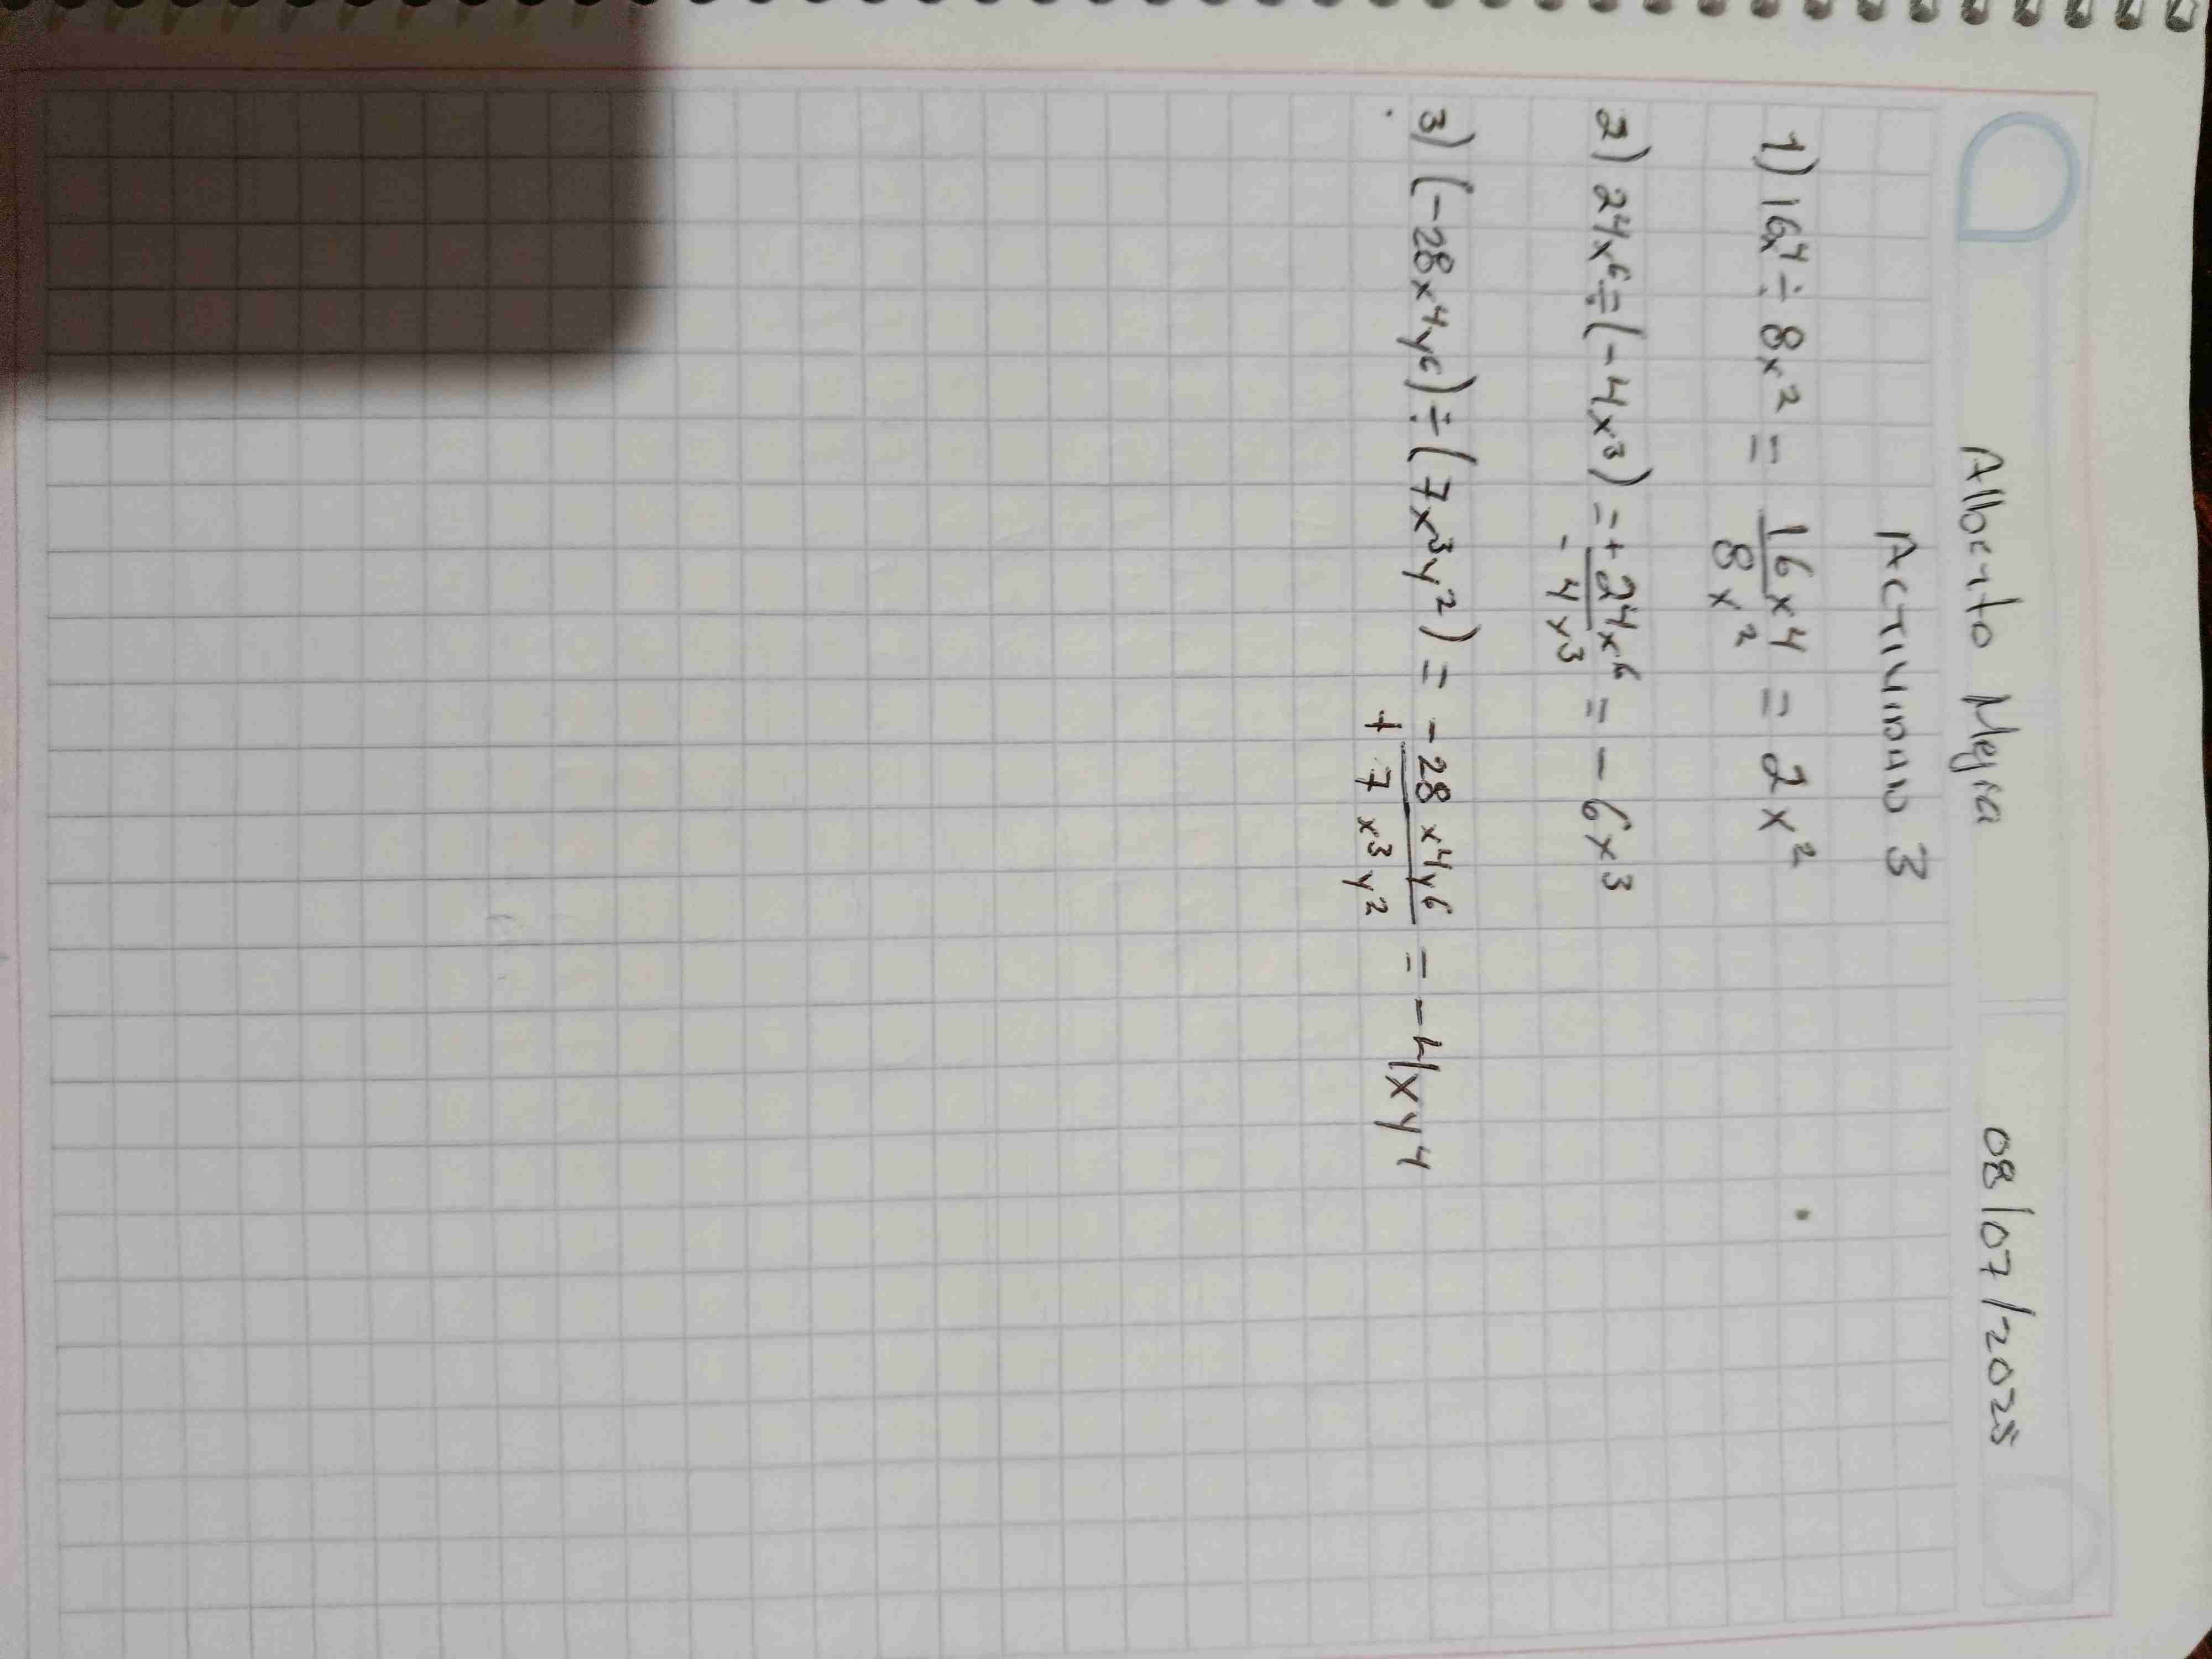 Alberto Mejia 08/07/2025
ACTIVIDAD 3
1) 16x⁴ ÷ 8x² = 16x⁴/8x² = 2x²
2) 24x⁶ ÷ (-4x³) = +24x⁶/-4x³ = -6x³
3) (-28x⁴y⁶) ÷ (7x³y²) = -28x⁴y⁶/+7x³y² = -4xy⁴